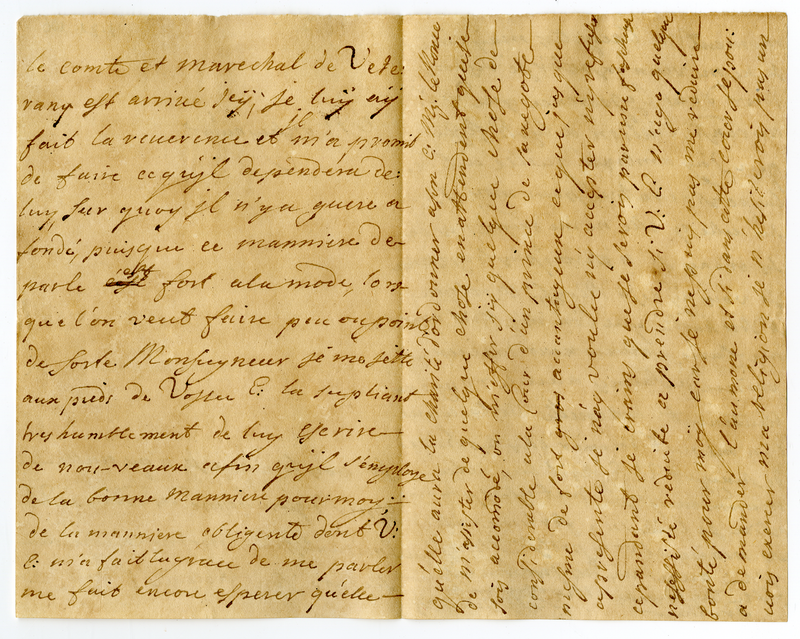 le comte et marechal de Vete:
rany est arrivé Jcÿ; Je luÿ aÿ
fait la reuerence et il m'a promit
de faire ce qu'jl dependéra de:
luy, sur quoy jl n'y a guere a
fondé, puisque ce manniere de
parle est fort ala mode, lors
que l'on veut faire peu ou point
de sorte Monseigneur je me jette
aux pieds de Vostre E: la supliant
tres humblement de luy escrire
de nou-veaux afin qu'jl s'employe
de la bonne manniere pour moy::
de la manniere obligente dont V:
E: m'a fait la grace de me parler
me fait encore esperer qu'elle
qu'elle aura la charité d'ordonner a son E: Mʒ: le Comte
de m'asister de quelque chose en attandant que je
sois acomodé, on m'offir jcÿ quelque chose de
considerable a la Cour d'un prince de
mesme de fort auantageux, ce que jusque
apresente je n'aÿ voulu nÿ accepter nÿ refuser
cepandant je crain que je serois par une facheuse
nessité réduite a prendre si V: E: n'a pas quelque
bonté pour moÿ, car je ne puis pas me réduire
a demander l'aumone et si dans cette cour je pou:
vois exercer ma religion je n'hesiterois pas un